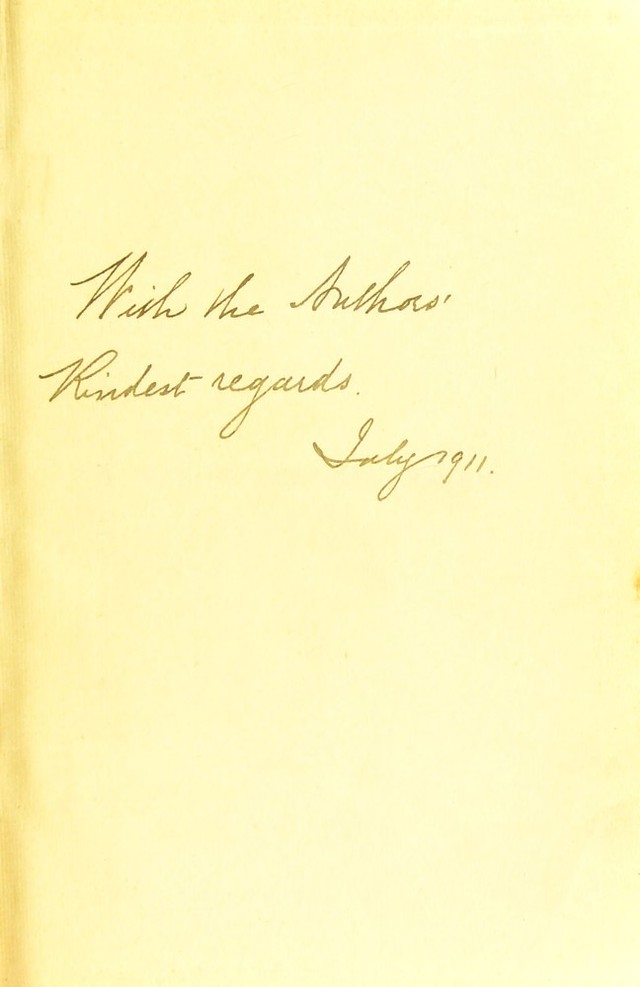 With the Authors'
Kindest regards.
July 1911.